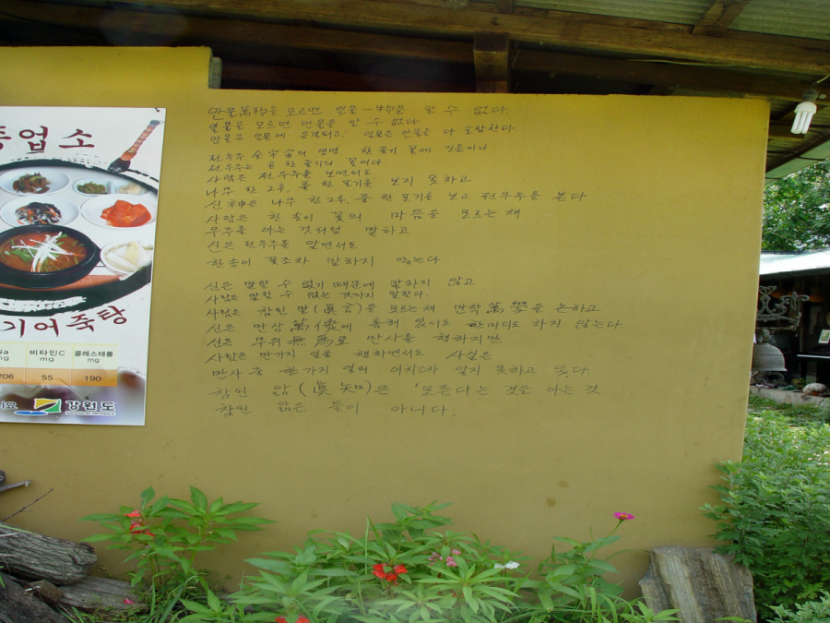 중업소
기어죽탕
비타민C
mg
콜레스테롤
mg
206
55
190
강원도
만물萬物을 모르면 일물一物을 알 수 없다.
일물을 모르면 만물을 알 수 없다
만물은 일물에 일물은 만물을 다 포함한다.
전우주 全宇宙의 생명 한 송이 꽃에 깃들이니
전우주는 곧 한 송이의 꽃이다
사람은 전우주를 보면서도
나무 한 그루, 풀 한 포기를 보지 못하고
신神은 나무 한 그루, 풀 한 포기를 보고 전우주를 본다
사람은 한 송이 꽃의 마음을 모르는 채
우주를 아는 것처럼 말하고
신은 전우주를 알면서도
한송이 꽃조차 말하지 않는다
신은 말할 수 없기 때문에 말하지 않고
사람은 말할 수 없는 것까지 말한다.
사람은 참된 말(眞言)을 모르는 채 만학萬學을 논하고
신은 만상 萬像에 통해 있어도 한마디도 하지 않는다
신은 무위無爲로 만사를 행하지만
사람은 만가지 일을 행하면서도 사실은
만사 중 한가지 일의 이치조차 알지 못하고 있다.
참된 앎(眞知)은 '모른다'는 것을 아는 것
참된 앎은 둘이 아니다.